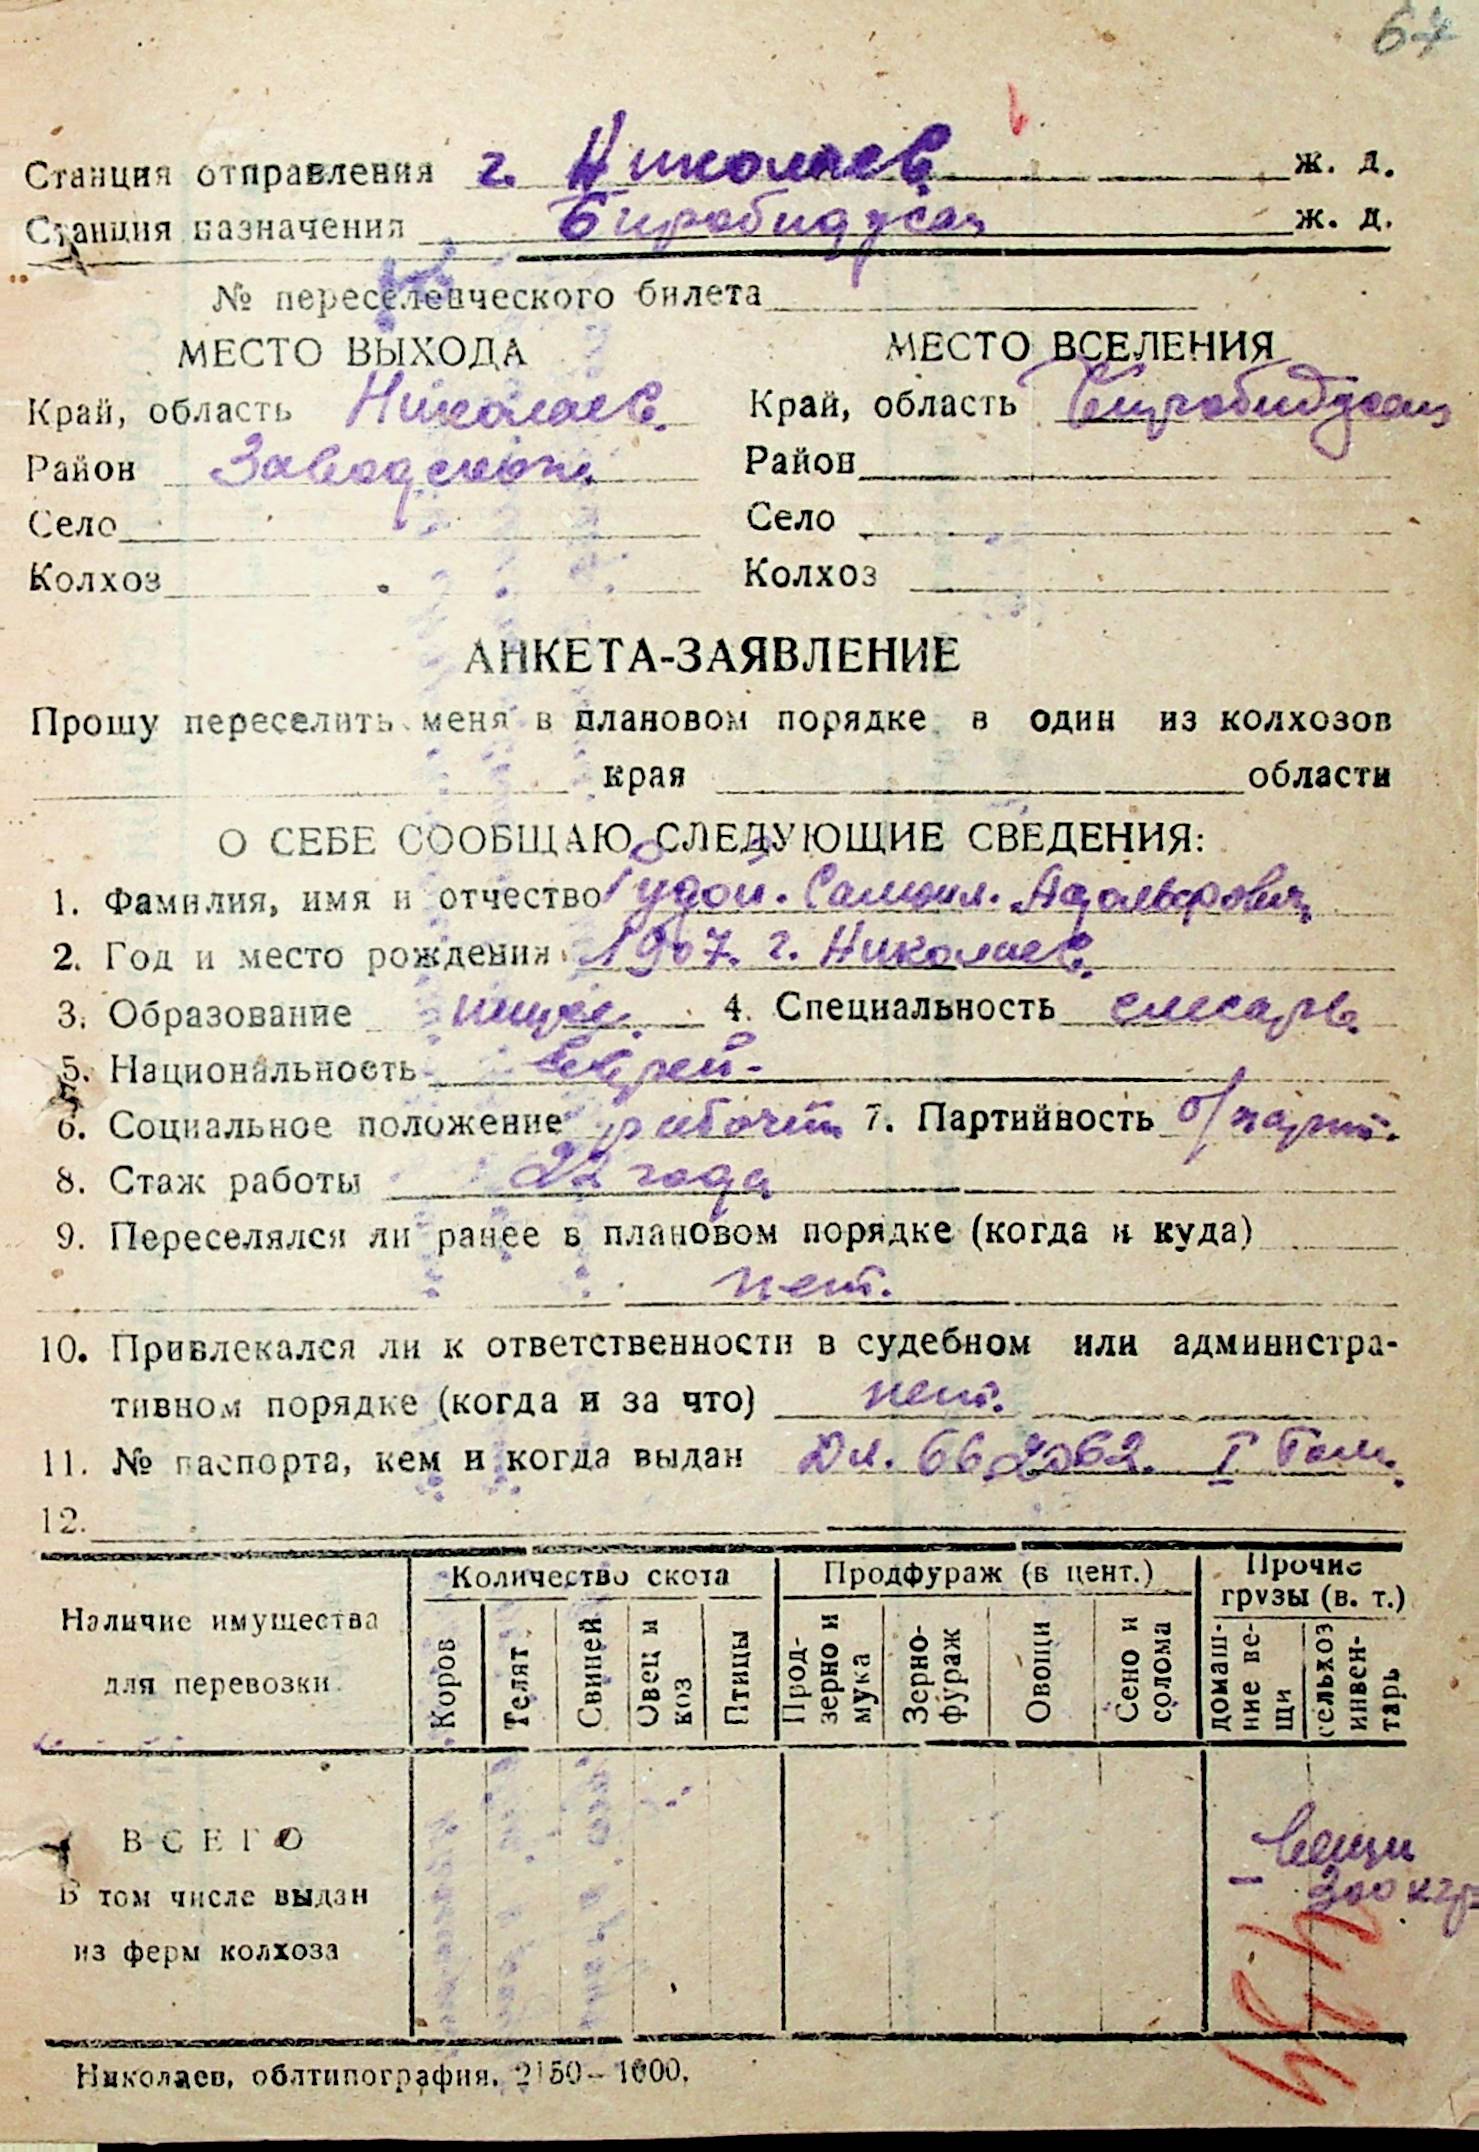 67
Станция отправления г. Николаев ж. д.
Станция назначения Биробиджан ж. д.
№ переселенческого билета
МЕСТО ВЫХОДА МЕСТО ВСЕЛЕНИЯ
Край, область Николаев. Край, область Биробиджан
Район Заводской Район
Село Село
Колхоз Колхоз
АНКЕТА-ЗАЯВЛЕНИЕ
Прошу переселить меня в плановом порядке в один из колхозов
края области
О СЕБЕ СООБЩАЮ СЛЕДУЮЩИЕ СВЕДЕНИЯ:
1. Фамилия, имя и отчество Гудой. Самуил. Адольфович
2. Год и место рождения 1907. г. Николаев.
3. Образование низшее 4. Специальность слесарь.
5. Национальность еврей.
6. Социальное положение рабочий 7. Партийность б/парт.
8. Стаж работы 22 года
9. Переселялся ли ранее в плановом порядке (когда и куда)
нет.
10. Привлекался ли к ответственности в судебном или администра-
тивном порядке (когда и за что) нет.
11. № паспорта, кем и когда выдан 662062. I
12.
Наличие имущества для перевозки Количество скота Продфураж (в цент.) Прочие грузы (в. т.)
Коров Телят Свиней Овец и коз Птицы Прод-зерно и мука Зерно-фураж Овощи Сено и солома домаш-ние ве-щи сельхоз инвен-тарь
ВСЕГО вещи
В том числе выдан 300 кгр
из ферм колхоза
Николаев, облтипография. 2150–1000.